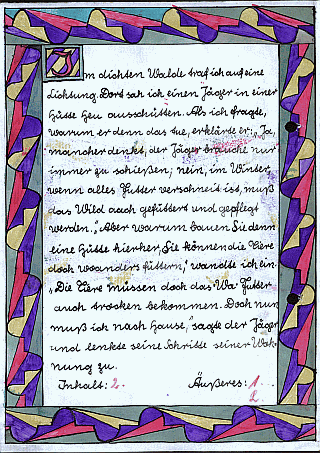 Im dichten Walde traf ich auf eine
Lichtung. Dort sah ich einen Jäger in einer
Hütte Heu ausschütten. Als ich fragte,
warum er denn das tue, erklärte er: „Ja,
mancher denkt, der Jäger brauche nur
immer zu schießen; nein, im Winter,
wenn alles Futter verschneit ist, muß
das Wild auch gefüttert und gepflegt
werden." „Aber warum bauen Sie denn
eine Hütte hierher, Sie können die Tiere
doch woanders füttern," wandte ich ein.
„Die Tiere müssen doch das Futter
auch trocken bekommen. Doch nun
muß ich nach Hause," sagte der Jäger
und lenkte seine Schritte seiner Woh-
nung zu.
Inhalt: 2. Äußeres: 1
2.